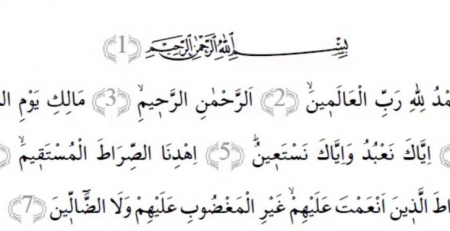 بِسْمِ اللهِ الرَّحْمٰنِ الرَّحِيمِ ﴿1﴾
لِلهِ رَبِّ الْعَالَمِينَۙ ﴿2﴾ اَلرَّحْمٰنِ الرَّحِيمِۙ ﴿3﴾ مَالِكِ يَوْمِ
اِيَّاكَ نَعْبُدُ وَاِيَّاكَ نَسْتَعِينُۜ ﴿5﴾ اِهْدِنَا الصِّرَاطَ الْمُسْتَقِيمَۙ
الَّذِينَ اَنْعَمْتَ عَلَيْهِمْۙ غَيْرِ الْمَغْضُوبِ عَلَيْهِمْ وَلَا الضَّٓالِّينَ ﴿7﴾